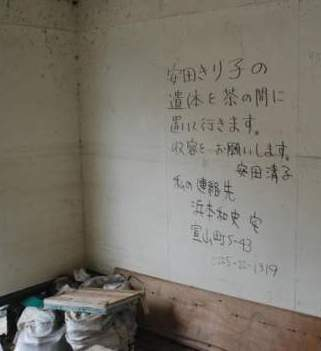 安田きり子の
遺体を茶の間に
置いて行きます。
収容をお願いします。
安田清子
私の連絡先
浜本和史 宅
宣山町5-43
25-22-1319